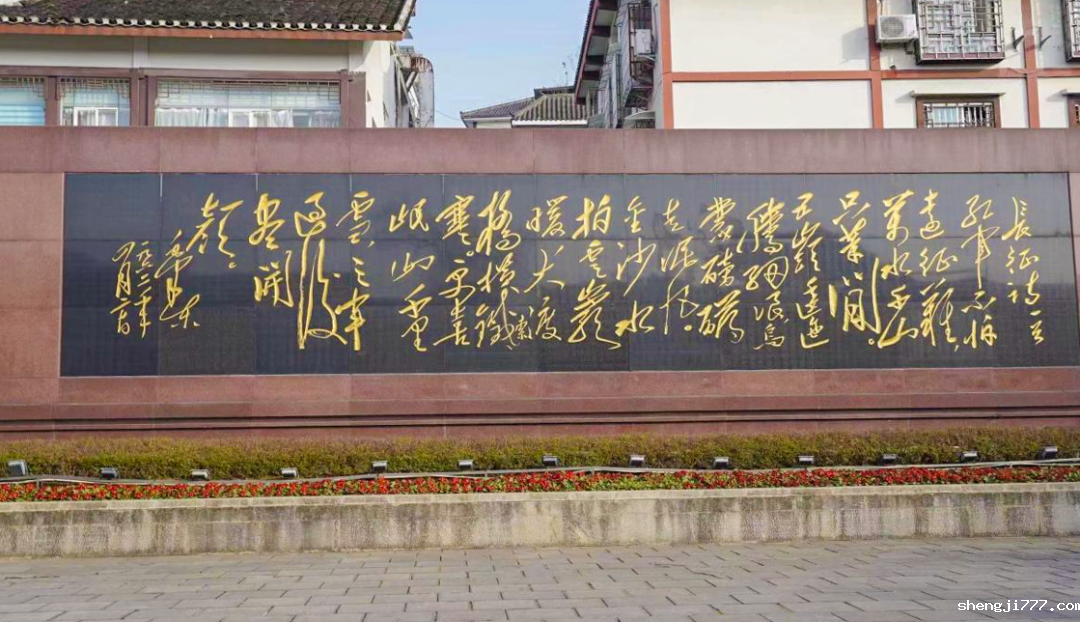 長征詩一首
紅軍不怕
遠征難，
萬水千山
只等閒。
五嶺逶迤
騰細浪，烏
蒙磅礴
走泥丸。
金沙水
拍雲崖
暖，大渡
橋橫鐵索
寒。更喜
岷山千里
雪，三軍
過後
盡開
顏。
毛澤東
一九六二年
四月二十日
shengji777.com